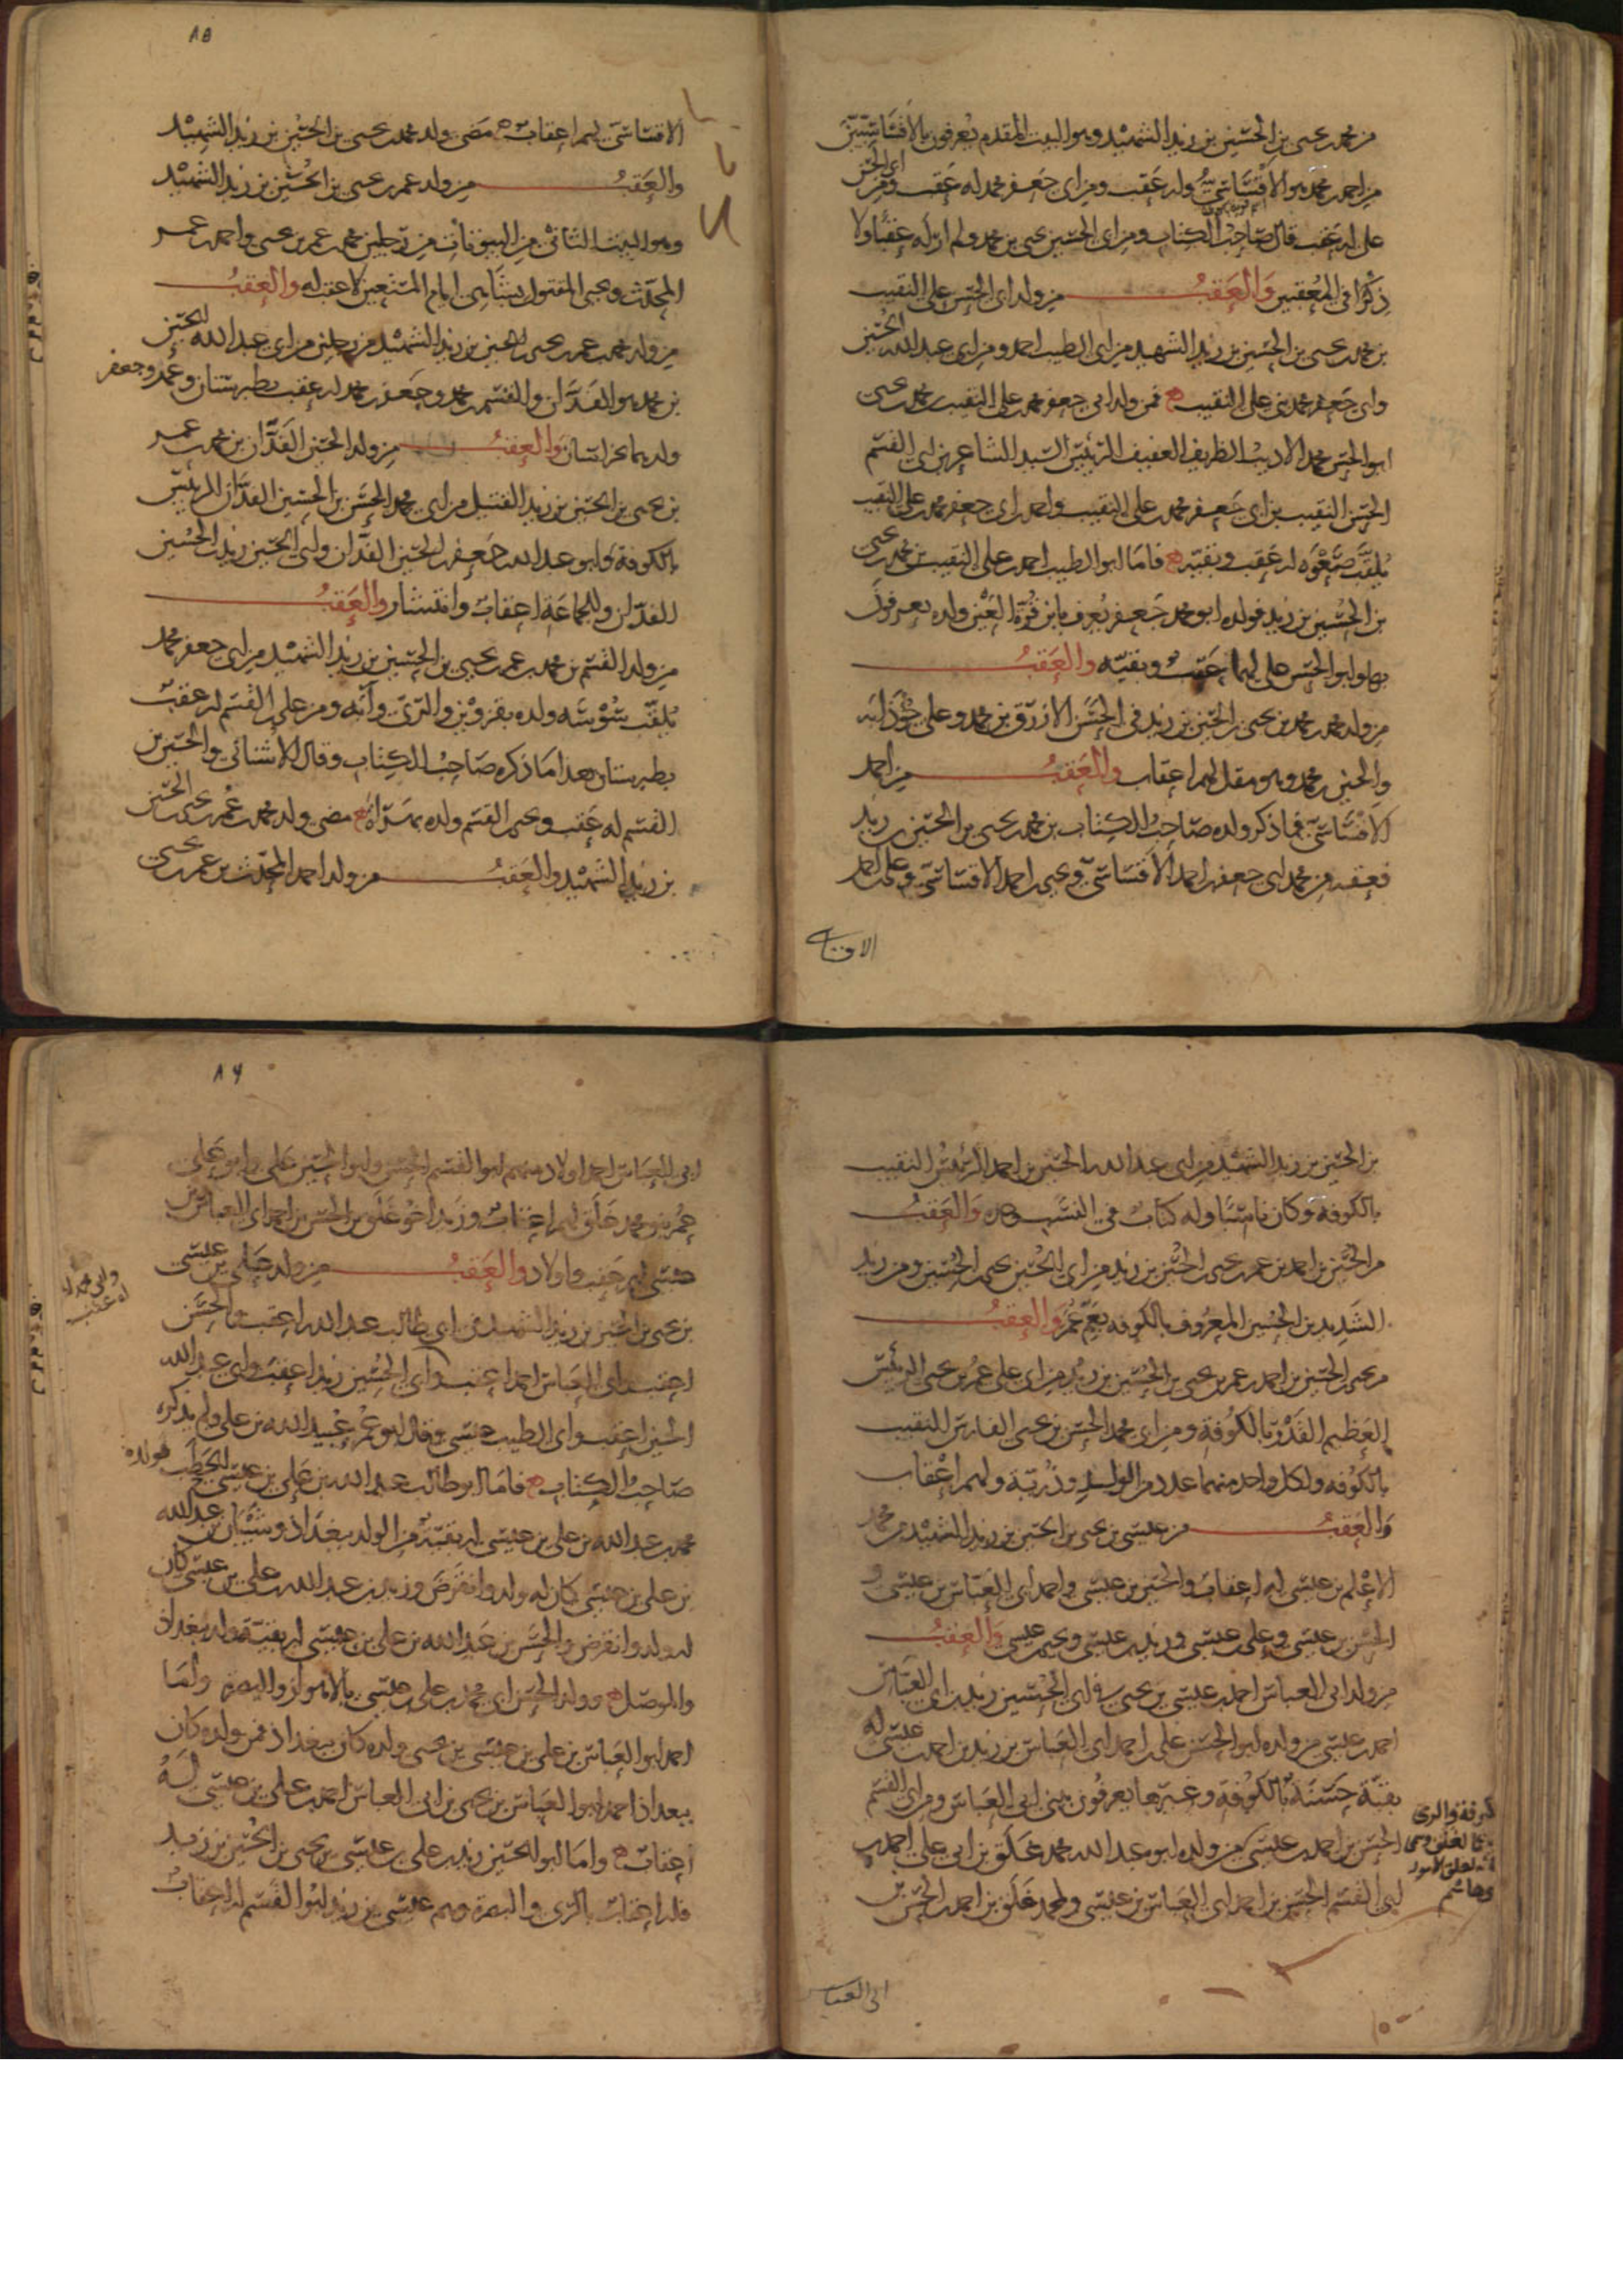 من محمد بن يحيى بن الحسين بن زيد الشهيد وهو البيت المقدم يعرفون بالاقساسيين
من احمد بن محمد هو الاقساسي وله عقب ومن ابي جعفر محمد له عقب ومن ابي الحسن
علي له عقب قال صاحب الكتاب ومن ابي الحسين يحيى بن محمد ولم ار له عقبا ولا
ذكرا في المعقبين والعقب من ولد ابي الحسن علي النقيب
بن محمد بن يحيى بن الحسين بن زيد الشهيد من ابي الطيب احمد ومن ابي عبد الله الحسين
وابي جعفر محمد بني علي النقيب فمن ولد ابي جعفر محمد بن علي النقيب بن محمد بن يحيى
ابو الحسن محمد الاديب الظريف العفيف الرئيس السيد الشاعر بن ابي القسم
الحسن النقيب بن ابي جعفر محمد بن علي النقيب واحمد بن ابي جعفر محمد بن علي النقيب
يلقب صعوه له عقب وبقية فاما ابو الطيب احمد بن علي النقيب بن محمد بن يحيى
بن الحسين بن زيد فولده ابو محمد جعفر يعرف بابن قرة العين ولده يعرفون
بها وابو الحسن علي لهما عقب وبقية والعقب
من ولد محمد بن محمد بن يحيى بن الحسين بن زيد في الحسن الازرق بن محمد وعلي
والحسين بن محمد وهو مقل لهم اعقاب والعقب من احمد
الاقساسي فيما ذكر ولده صاحب الكتاب بن محمد بن يحيى بن الحسين بن زيد
فعقبه من محمد ابي جعفر بن احمد الاقساسي ويحيى بن احمد الاقساسي وعلي بن احمد
الاقسا
٨٥
الاقساسي لهم اعقاب مضى ولد محمد بن يحيى بن الحسين بن زيد الشهيد
والعقب من ولد عمر بن يحيى بن الحسين بن زيد الشهيد
وهو البيت الثاني من البيوتات من رجلين محمد بن عمر بن يحيى واحمد بن عمر
المحدث ويحيى المقتول بشاهي ايام المستعين لا عقب له والعقب
من ولد محمد بن عمر بن يحيى بن الحسين بن زيد الشهيد من رجلين من ابي عبد الله الحسين
بن محمد هو الفدان والقسم بن محمد وجعفر بن محمد له عقب بطبرستان وعمر وجعفر
ولدهما بخراسان والعقب من ولد الحسين الفدان بن محمد بن عمر
بن يحيى بن الحسين بن زيد القتيل من ابي محمد الحسن بن الحسين الفدان الرئيس
بالكوفة وابو عبد الله جعفر بن الحسين الفدان وابي الحسين زيد بن الحسين
الفدان وللجماعة اعقاب وانتشار والعقب
من ولد القسم بن محمد بن عمر بن يحيى بن الحسين بن زيد الشهيد من ابي جعفر محمد
يلقب شوشه ولده بقزوين والري وآبه ومن علي بن القسم له عقب
بطبرستان بعد اما ذكره صاحب الكتاب وقال الاشناني والحسين بن
القسم له عقب ويحيى بن القسم ولده مضى ولد محمد بن عمر بن يحيى بن الحسين
بن زيد الشهيد والعقب من ولد احمد المحدث بن عمر بن يحيى
بن الحسين بن زيد الشهيد من ابي عبد الله الحسين بن احمد الرئيس النقيب
بالكوفة وكان ناسبا وله كتاب في النسب والعقب
من الحسين بن احمد بن عمر بن يحيى بن الحسين بن زيد من ابي الحسين يحيى بن الحسين ومن زيد
الشديد بن الحسين المعروف بالكوفه بعم عمر والعقب
من يحيى بن الحسين بن احمد بن عمر بن يحيى بن الحسين بن زيد من ابي علي عمر بن يحيى الرئيس
العظيم القدر بالكوفة ومن ابي محمد الحسن بن يحيى الفارس النقيب
بالكوفه ولكل واحد منهما عدد من الولد وذرية ولهم اعقاب
والعقب من عيسى بن يحيى بن الحسين بن زيد الشهيد من محمد
الاعلم بن عيسى له اعقاب والحسين بن عيسى واحمد ابي العباس بن عيسى و
الحسن بن عيسى وعلي بن عيسى وزيد بن عيسى ويحيى بن عيسى والعقب
من ولد ابي العباس احمد بن عيسى بن يحيى في ابي الحسين زيد بن ابي العباس
احمد بن عيسى من ولده ابو الحسن علي بن احمد ابي العباس بن زيد بن احمد بن عيسى له
بقية حسنة بالكوفة وغيرها يعرفون ببني ابي العباس ومن ابي القسم
الحسن بن احمد بن عيسى من ولده ابو عبد الله محمد غلق بن ابي علي احمد بن
ابي القسم الحسن بن احمد ابي العباس بن عيسى ولمحمد غلق بن احمد بن الحسن بن
ابي العبا
٨٦
ابي العباس احمد اولاد منهم ابو القسم الحسن وابو الحسين علي وابو علي
عمر بنو محمد غلق لهم اعقاب وزيد اخو غلق بن الحسن بن احمد ابي العباس بن
عيسى لهم عقب واولاد والعقب من ولد علي بن عيسى
بن يحيى بن الحسين بن زيد الشهيد من ابي طالب عبد الله اعقب والحسن
اعقب وابي العباس احمد اعقب وابي الحسين زيد اعقب وابي عبد الله
الحسين اعقب وابي الطيب عيسى وقال ابو عمر عبيد الله بن علي ولم يذكره
صاحب الكتاب فاما ابو طالب عبد الله بن علي بن عيسى فولده
محمد بن عبد الله بن علي بن عيسى له بقية من الولد ببغداد وشيبان بن عبد الله
بن علي بن عيسى كان له ولد وانقرض وزيد بن عبد الله بن علي بن عيسى كان
له ولد وانقرض والحسن بن عبد الله بن علي بن عيسى له بقية ولد ببغداد
والموصل وولد الحسن ابي محمد بن علي بن عيسى بالاهواز والبصرة واما
احمد ابو العباس بن علي بن عيسى بن يحيى ولده كان ببغداد فمن ولده كان
ببغداد احمد ابو العباس بن يحيى بن ابي العباس احمد بن علي بن عيسى له
اعقاب واما ابو الحسين زيد بن علي بن عيسى بن يحيى بن الحسين بن زيد
فله اعقاب بالري والبصرة وهم عيسى بن زيد ابو القسم له اعقاب